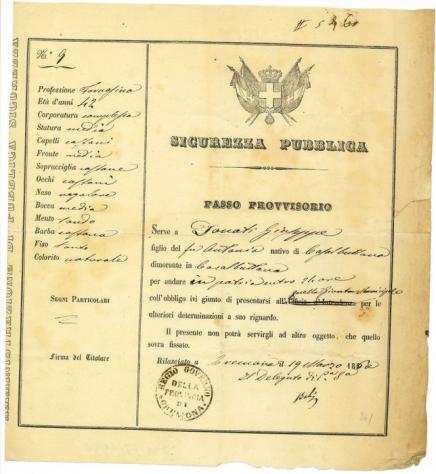 No. 9
Professione
Età d'anni 42
Corporatura complessa
Statura media
Capelli castani
Fronte media
Sopracciglia castane
Occhi castani
Naso regolare
Bocca media
Mento tondo
Barba castana
Viso tondo
Colorito naturale
SEGNI PARTICOLARI
Firma del Titolare
SICUREZZA PUBBLICA
PASSO PROVVISORIO
Serve a Donati Giuseppe
figlio del fu Antonio nativo di Casalbuttano
dimorante in Casalbuttano
per andare in patria entro 24 ore
coll'obbligo ivi giunto di presentarsi all' per le
ulteriori determinazioni a suo riguardo.
Il presente non potrà servirgli ad altro oggetto, che quello
sovra fissato.
Rilasciato a Cremona il 19 Marzo
Il Delegato di
REGIO GOVERNO
DELLA
PROVINCIA
DI
CREMONA